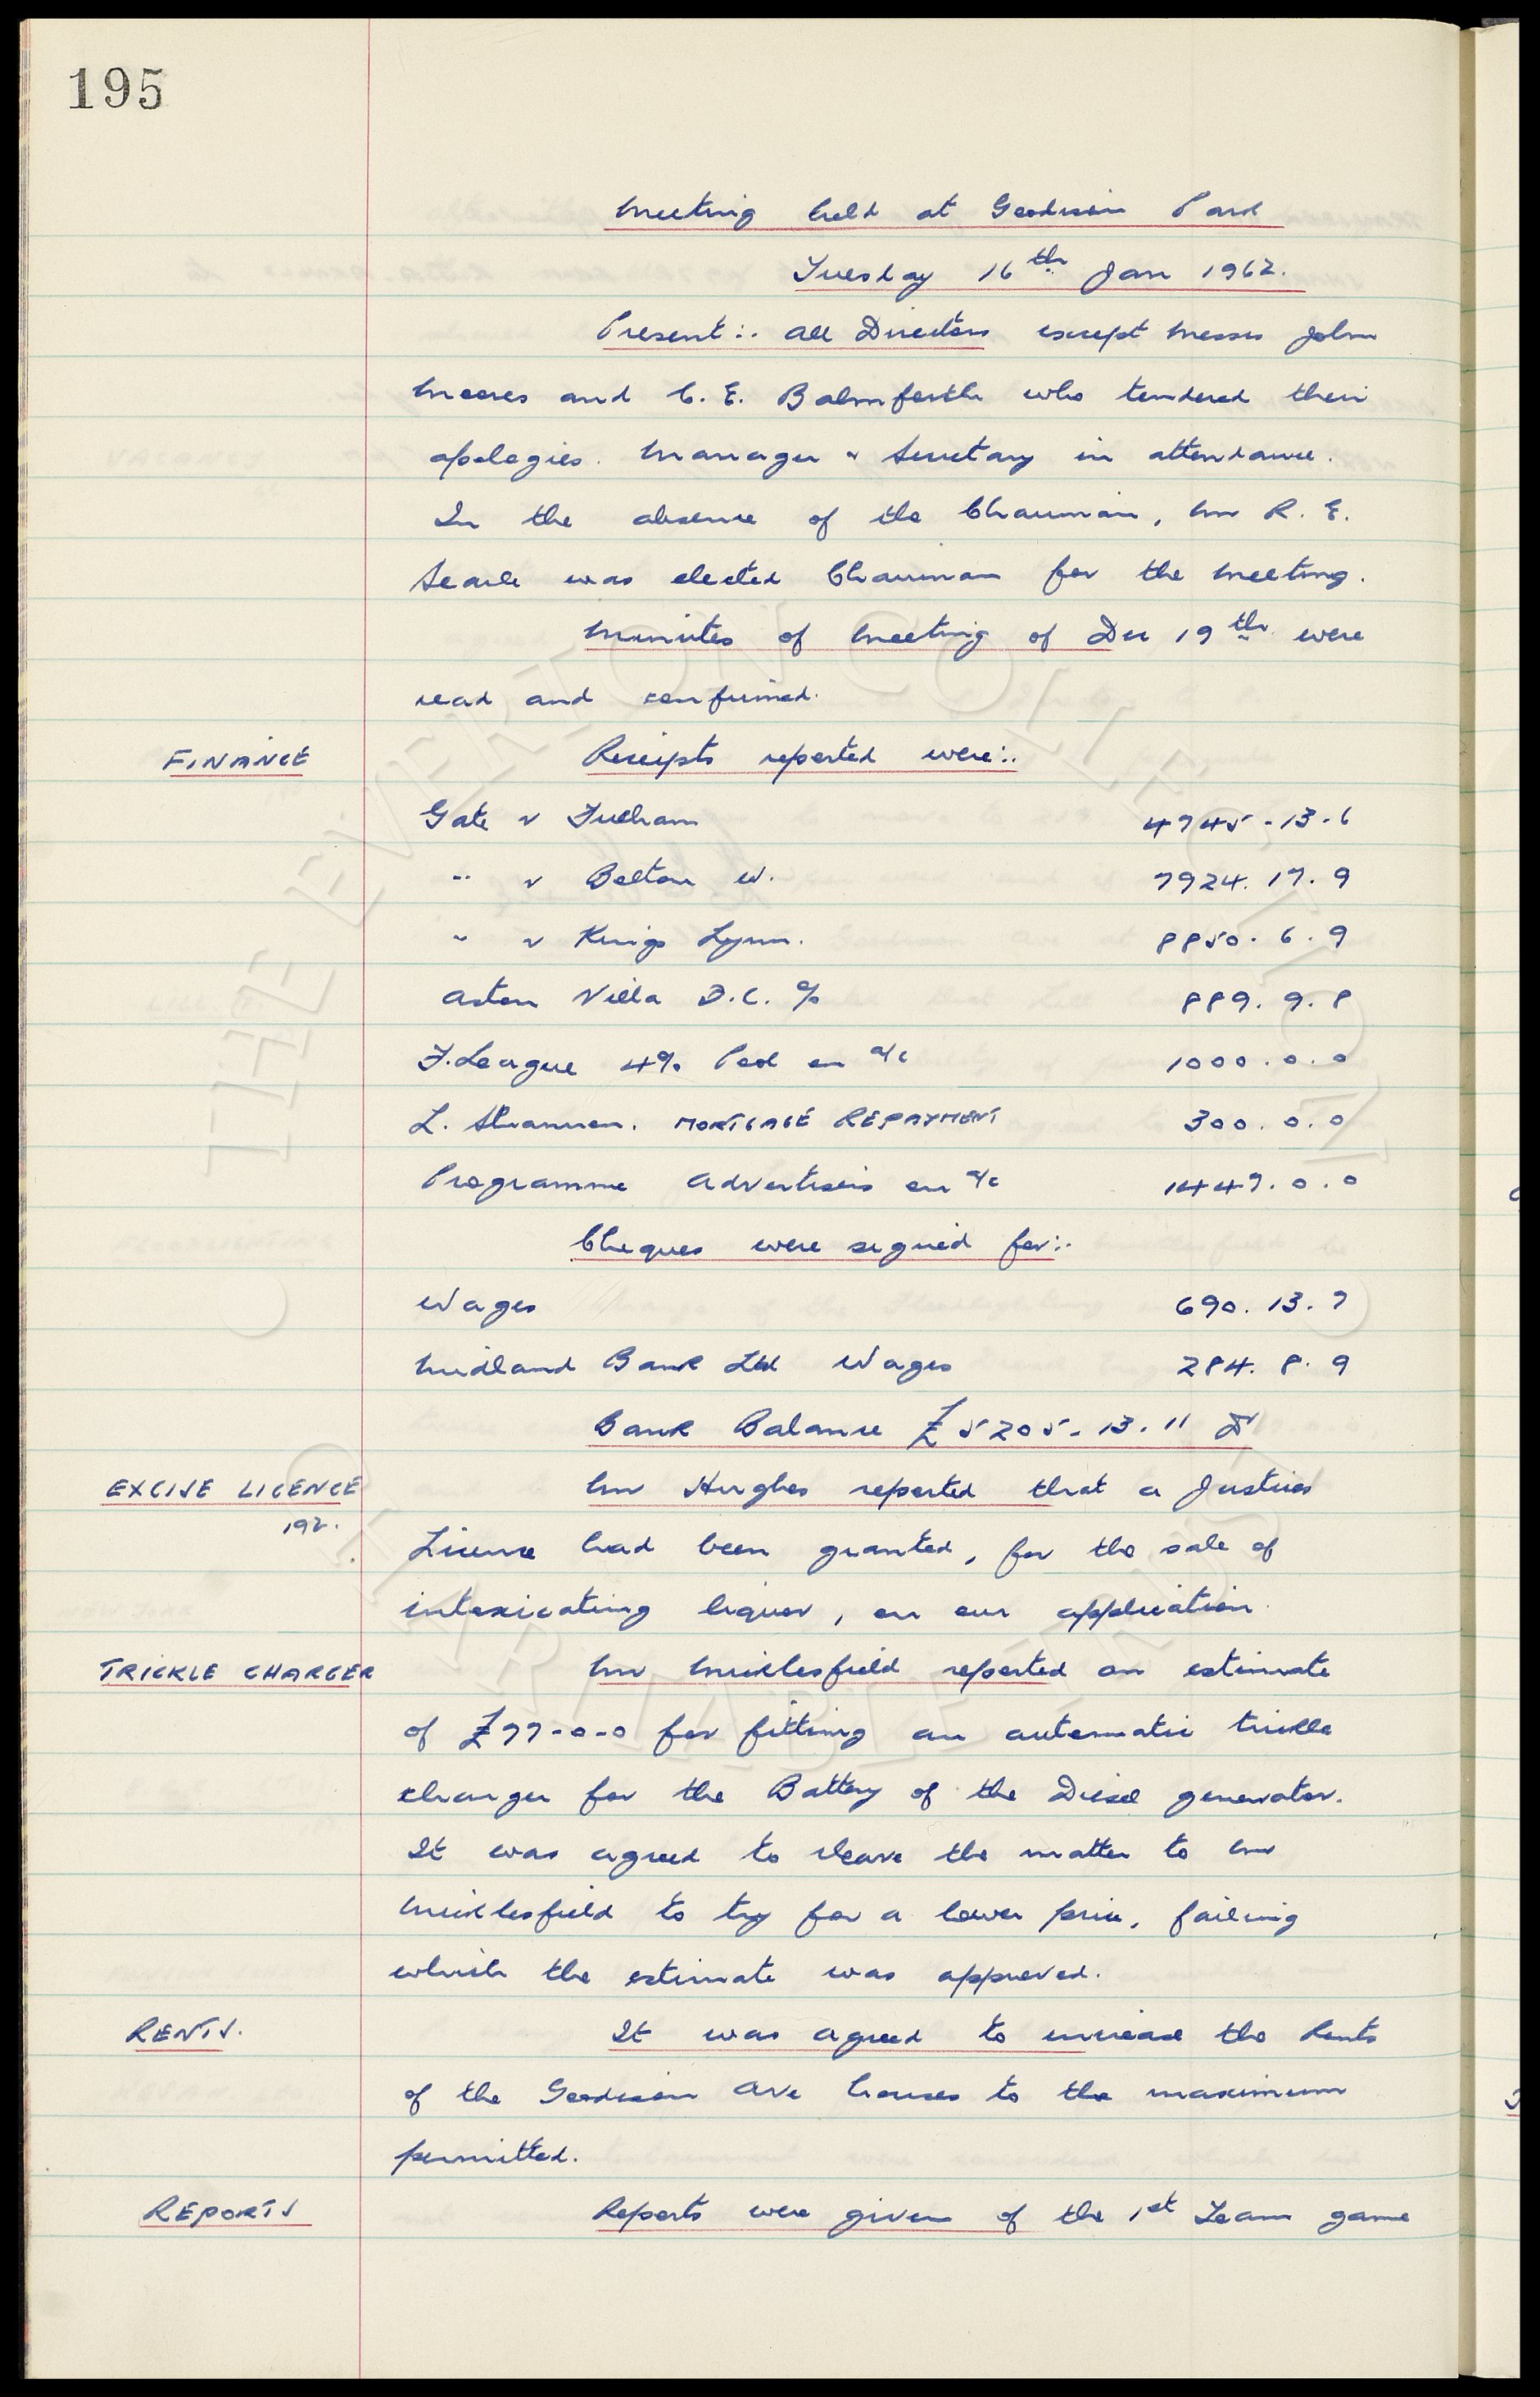 195
Meeting held at Goodison Park
Tuesday 16th Jan 1962.
Present:. All Directors except Messrs John
Moores and C. E. Balmforth who tendered their
apologies. Manager & Secretary in attendance.
In the absence of the Chairman, Mr R. E.
Searle was elected Chairman for the meeting.
Minutes of meeting of Dec 19th were
read and confirmed.
FINANCE Receipts reported were:.
Gate v Fulham 4745-13.6
" v Bolton W. 7924.17.9
" v Kings Lynn. 8850.6.9
Aston Villa F.C. 889.9.8
F. League 4% Pool on a/c 1000.0.0
L. Shannon. MORTGAGE REPAYMENT 300.0.0
Programme Advertisers on a/c 1447.0.0
Cheques were signed for:.
Wages 690.13.7
Midland Bank Ltd Wages 284.8.9
Bank Balance £5205-13.11 Dr
EXCISE LICENCE Mr Hughes reported that a Justices
192.
License had been granted, for the sale of
intoxicating liquor, on our application.
TRICKLE CHARGER Mr Micklesfield reported an estimate
of £77-0-0 for fitting an automatic trickle
charger for the Battery of the Diesel generator.
It was agreed to leave the matter to Mr
Micklesfield to try for a lower price, failing
which the estimate was approved.
RENTS. It was agreed to increase the Rents
of the Goodison Ave houses to the maximum
permitted.
REPORTS Reports were given of the 1st Team game
THE EVERTON COLLECTION
CHARITABLE TRUST